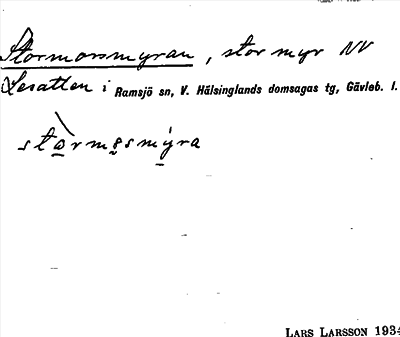 Stormorsmyran, stor myr NV
Lesatten i Ramsjö sn, V. Hälsinglands domsagas tg, Gävleb. l.
stòrmɷsmýra
LARS LARSSON 1934